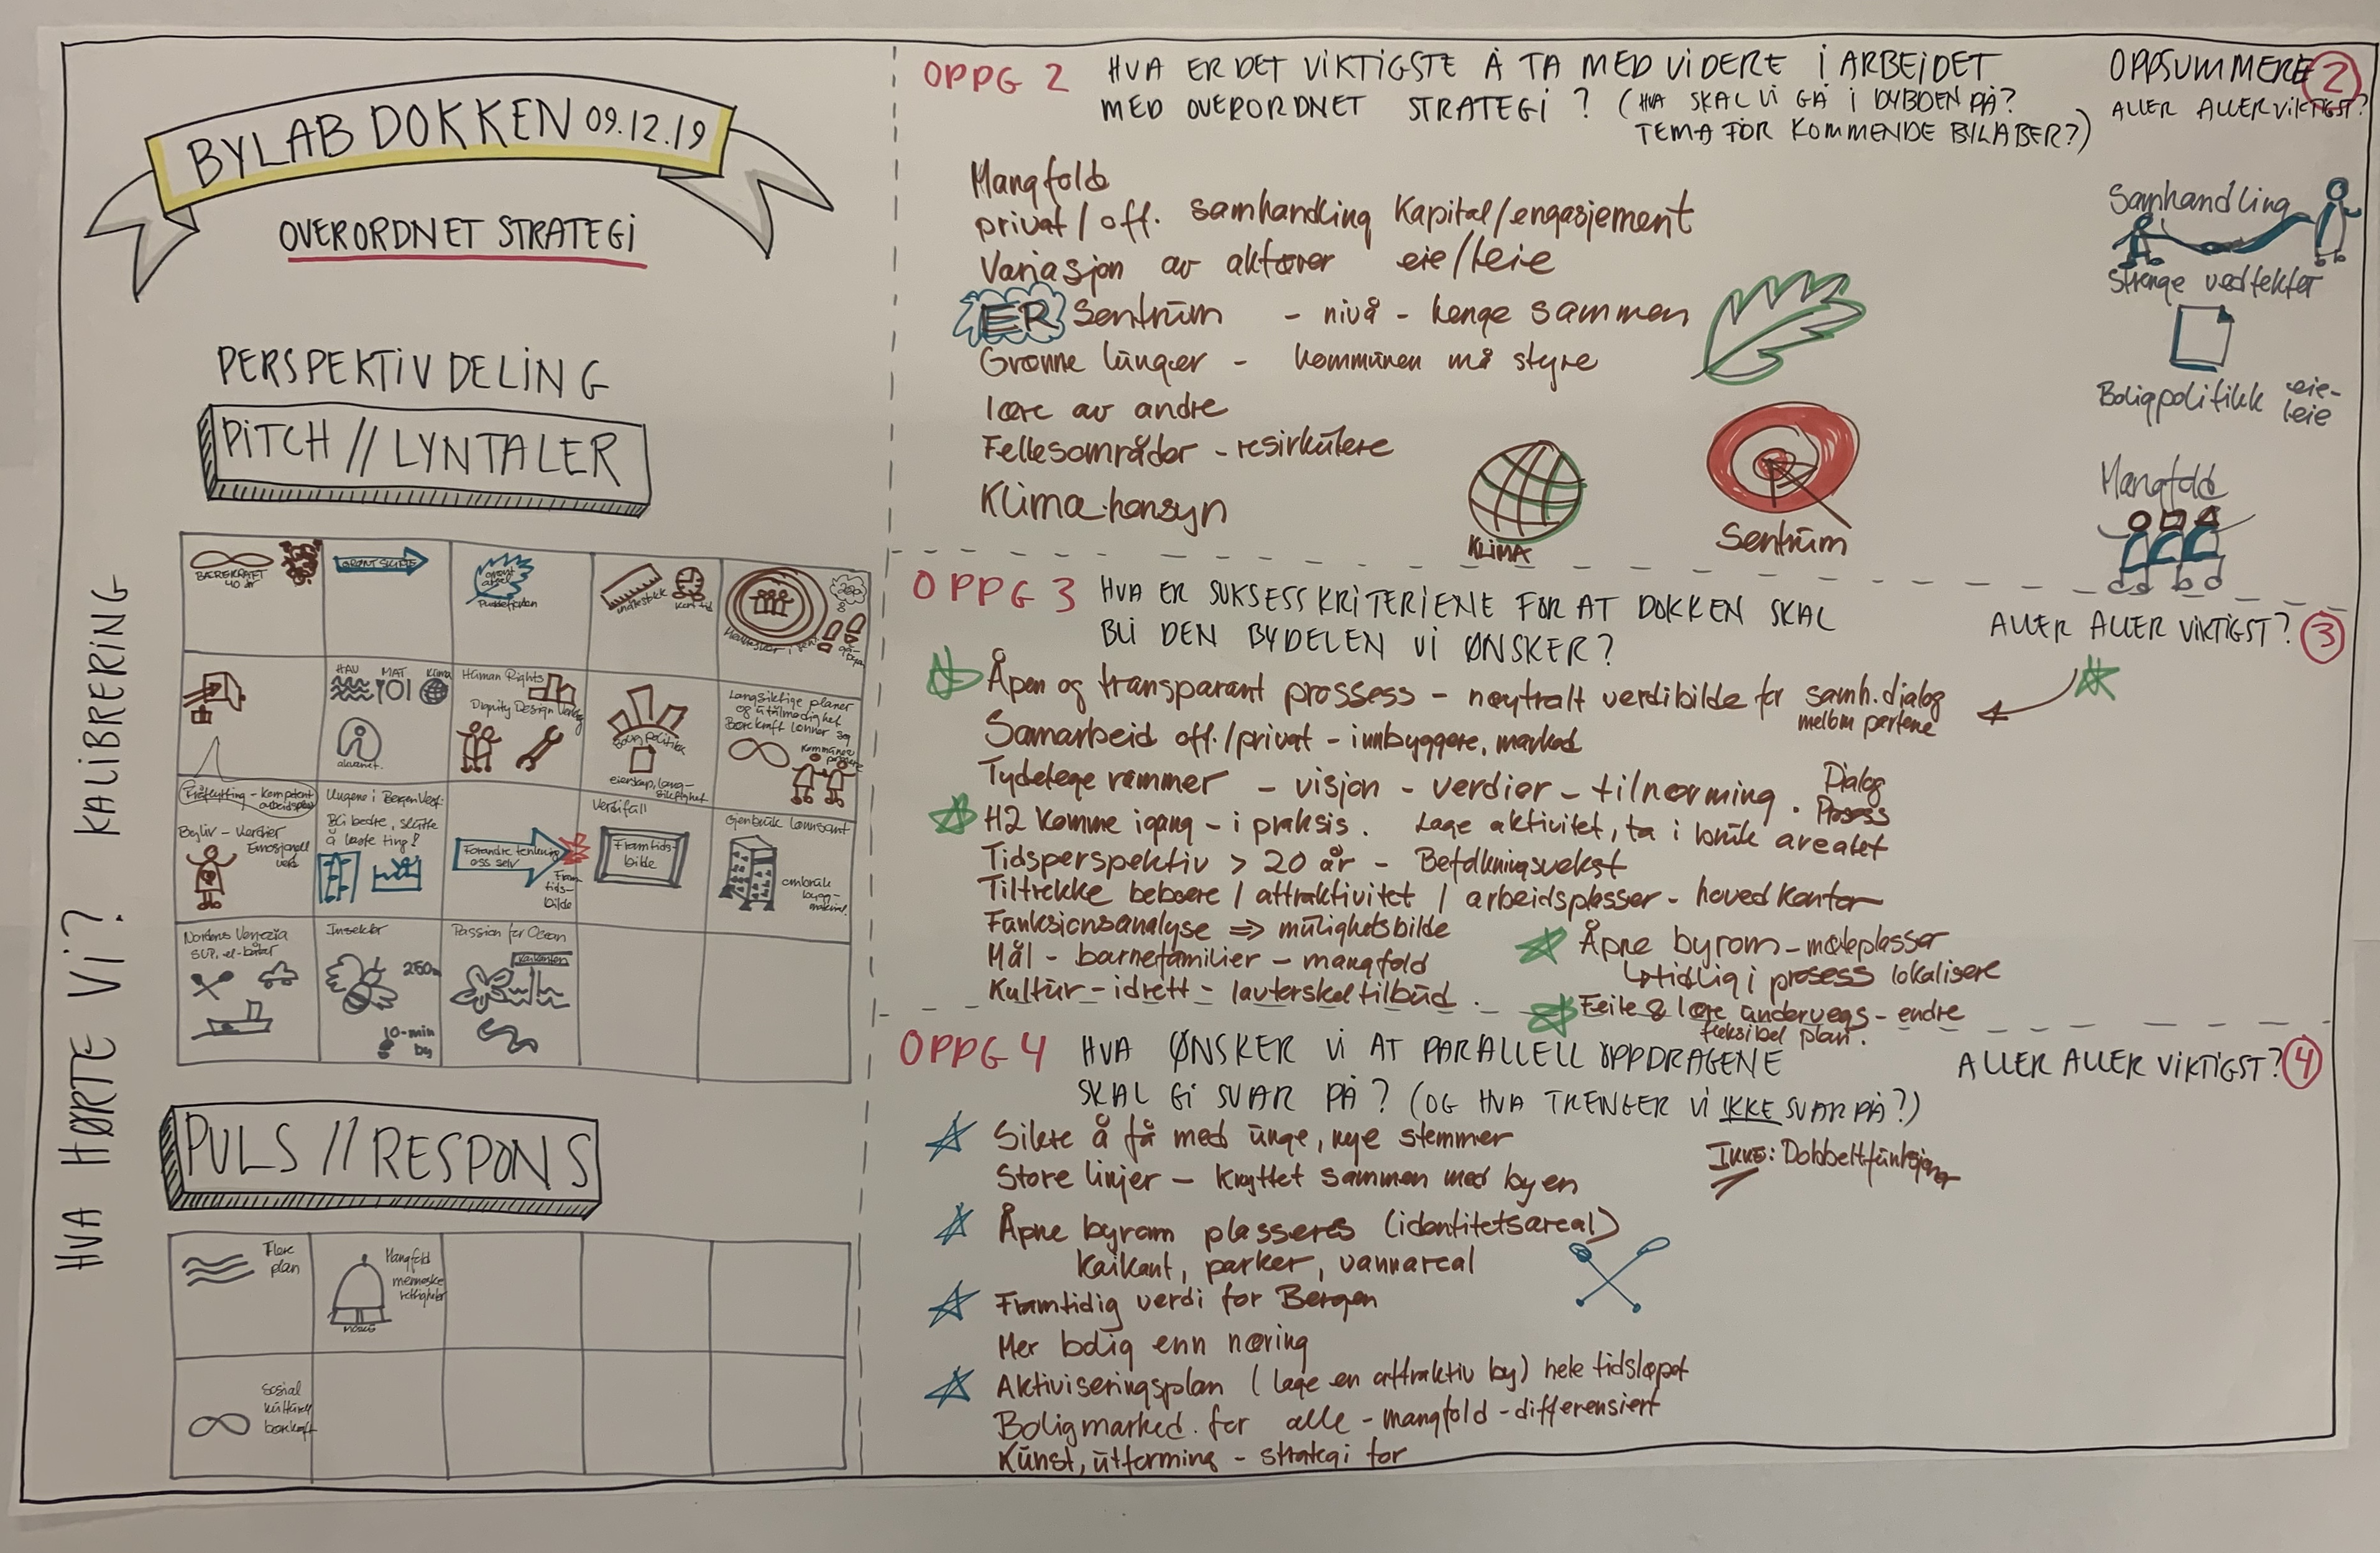 BYLAB DOKKEN 09.12.19
OVERORDNET STRATEGI
PERSPEKTIVDELING
PITCH // LYNTALER
HVA HØRTE VI? KALIBRERING
BÆREKRAFT
40 år
GRØNT SKIFTE
Målestokk
Kort tid
HAV MAT Klima
akvariet
Human Rights
Dignity Design Verktøy
Boligpolitikk
eierskap, lang-
siktighet
Langsiktige planer
og utålmodighet
Bærekraft lønner seg
Kommunen
private
Fraflytting - kompetent
arbeidsplass
Byliv - Verdier
Emosjonell
verdi
Ungene i Bergen Vest:
Bli bedre, slutte
å love ting!
Forandre tenkning
oss selv
Fram-
tids-
bilde
Verdifall
Framtids-
bilde
Gjenbruk lønnsomt
ombruk
bygg-
material.
Nordens Venezia
SUP, el-båter
Insekter
250m
10-min
by
Passion for Ocean
Kaikanten
PULS // RESPONS
Flere
plan
Mangfold
menneske
rettigheter
Sosial
kulturell
bærekraft
OPPG 2 HVA ER DET VIKTIGSTE Å TA MED VIDERE I ARBEIDET
MED OVERORDNET STRATEGI? (HVA SKAL VI GÅ I DYBDEN PÅ?
TEMA FOR KOMMENDE BYLABER?)
OPPSUMMERE 2
ALLER ALLER VIKTIGST?
Mangfold
privat / off. samhandling Kapital/engasjement
Variasjon av aktører eie/leie
ER Sentrum - nivå - henge sammen
Grønne lunger - kommunen må styre
lære av andre
Fellesområder - resirkulere
Klima-hensyn
KLIMA
Sentrum
Samhandling
Strenge vedtekter
Boligpolitikk eie-
leie
Mangfold
OPPG 3 HVA ER SUKSESSKRITERIENE FOR AT DOKKEN SKAL
BLI DEN BYDELEN VI ØNSKER?
ALLER ALLER VIKTIGST? 3
Åpen og transparant prossess - nøytralt verdibilde for samh. dialog
mellom partene
Samarbeid off./privat - innbyggere, marked
Tydelege rammer - visjon - verdier - tilnærming. Dialog
Prosess
H2 Komme igang - i praksis. Lage aktivitet, ta i bruk arealet
Tidsperspektiv > 20 år - Befolkningsvekst
Tiltrekke beboere / attraktivitet / arbeidsplasser - hovedkontor
Funksjonsanalyse => mulighetsbilde
Mål - barnefamilier - mangfold
Kultur - idrett - lavterskeltilbud.
Åpne byrom - møteplasser
↳ tidlig i prosess lokalisere
Feile & lære undervegs - endre
fleksibel plan.
OPPG 4 HVA ØNSKER VI AT PARALLELLOPPDRAGENE
SKAL GI SVAR PÅ? (OG HVA TRENGER VI IKKE SVAR PÅ?)
ALLER ALLER VIKTIGST? 4
Sikre å få med unge, nye stemmer
Store linjer - knyttet sammen med byen
IKKE: Dobbeltfunksjoner
Åpne byrom plasseres (identitetsareal)
Kaikant, parker, vannareal
Framtidig verdi for Bergen
Mer bolig enn næring
Aktiviseringsplan (lage en attraktiv by) hele tidsløpet
Boligmarked for alle - mangfold - differensiert
Kunst, utforming - strategi for